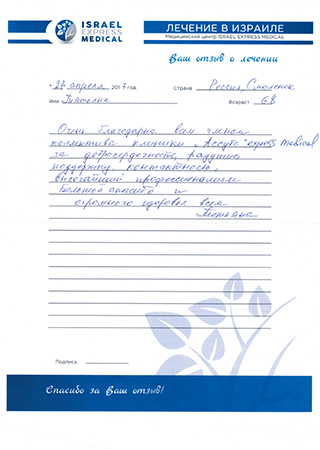 ISRAEL
EXPRESS
MEDICAL
ЛЕЧЕНИЕ В ИЗРАИЛЕ
Медицинский центр ISRAEL EXPRESS MEDICAL
Ваш отзыв о лечении
"27 апреля 2017 год. Страна Россия, Смоленск
Имя Татьяна Возраст 68
Очень благодарна всем членам
коллектива клиники „Ассута" express medical
за добросердечность, радушие
поддержку, контактность,
высочайший профессионализм
Большое спасибо и
огромного здоровья всем
Татьяна
Подпись
Спасибо за Ваш отзыв!